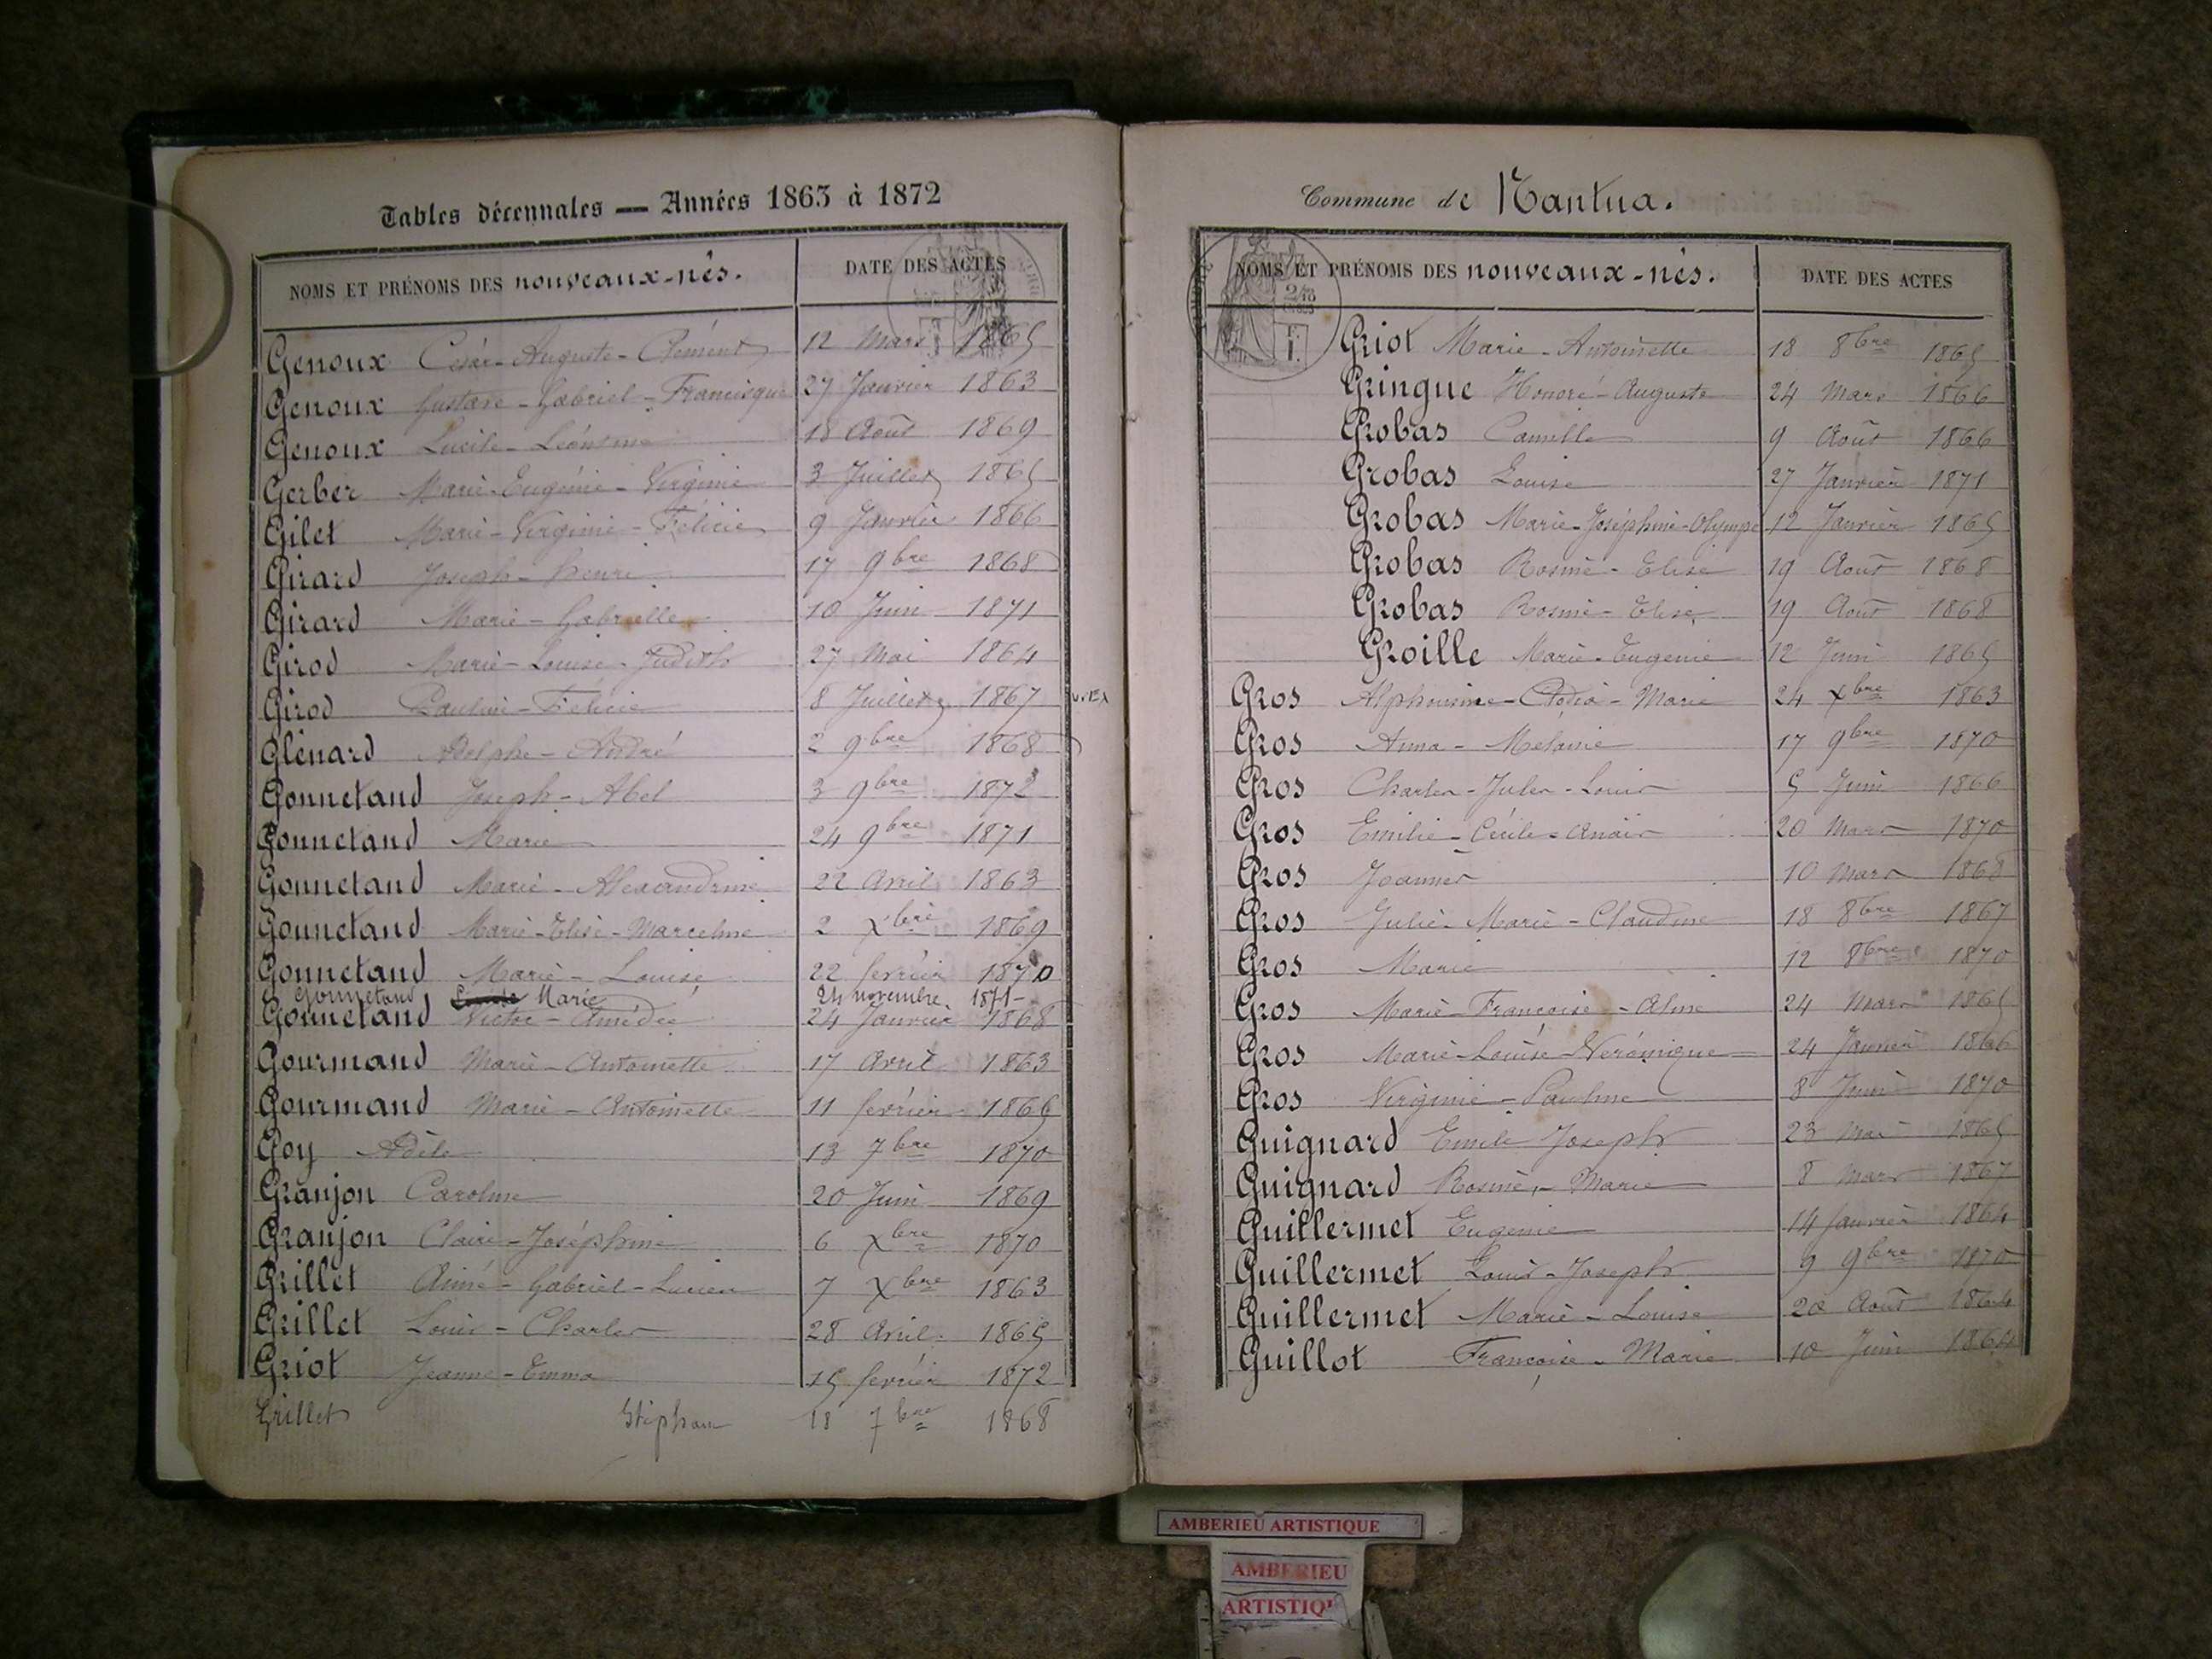 Tables décennales — Années 1863 à 1872
NOMS ET PRÉNOMS DES nouveaux-nés. DATE DES ACTES
Genoux César-Auguste-Clément 12 Mars 1865
Genoux Gustave-Gabriel-Francisque 27 Janvier 1863
Genoux Lucile-Léontine 18 Août 1869
Gerber Marie-Eugénie-Virginie 3 Juillet 1865
Gilet Marie-Virginie-Félicie 9 Janvier 1866
Girard Joseph-henri 17 9bre 1868
Girard Marie-Gabrielle 10 Juin 1871
Girod Marie-Louise-Judith 27 Mai 1864
Girod Pauline-Félicie 8 Juillet 1867
Glénard Adolphe-André 2 9bre 1868
Gonnetand Joseph-Abel 3 9bre 1872
Gonnetand Marie 24 9bre 1871
Gonnetand Marie-Alexandrine 22 Avril 1863
Gonnetand Marie-Elise-Marceline 2 Xbre 1869
Gonnetand Marie-Louise 22 fevrier 1870
Gonnetand Marie 24 novembre 1871
Gonnetand Victor-Amédée 24 Janvier 1868
Gourmand Marie-Antoinette 17 Avril 1863
Gourmand Marie-Antoinette 11 février 1865
Goy Adèle 13 7bre 1870
Granjon Caroline 20 Juin 1869
Granjon Claire-Joséphine 6 Xbre 1870
Grillet Aimé-Gabriel-Lucien 7 Xbre 1863
Grillet Louis-Charles 28 Avril 1865
Griot Jeanne-Emma 15 février 1872
Grillet Stéphane 18 7bre 1868
Commune de Nantua.
NOMS ET PRÉNOMS DES nouveaux-nés. DATE DES ACTES
Griot Marie-Antoinette 18 8bre 1865
Gringue Honoré-Auguste 24 Mars 1866
Grobas Camille 9 Août 1866
Grobas Louise 27 Janvier 1871
Grobas Marie-Joséphine-Olympe 12 Janvier 1865
Grobas Rosine-Elise 19 Août 1868
Grobas Rosine-Elise 19 Août 1868
Groille Marie-Eugenie 12 Juin 1865
Gros Alphonsine-Marie 24 Xbre 1863
Gros Anna-Mélanie 17 9bre 1870
Gros Charles-Jules-Louis 5 Juin 1866
Gros Emilie-Cécile-Anaïs 20 Mars 1870
Gros Joannes 10 Mars 1868
Gros Julie-Marie-Claudine 18 8bre 1867
Gros Marie 12 8bre 1870
Gros Marie-Françoise-Aline 24 Mars 1865
Gros Marie-Louise-Véronique 24 Janvier 1866
Gros Virginie-Pauline 8 Juin 1870
Guignard Emile Joseph 23 Mai 1865
Guignard Rosine-Marie 8 Mars 1867
Guillermet Eugenie 14 Janvier 1864
Guillermet Louis-Joseph 9 9bre 1870
Guillermet Marie-Louise 20 Août 1864
Guillot Françoise-Marie 10 Juin 1864
AMBERIEU ARTISTIQUE
AMBERIEU
ARTISTIQ